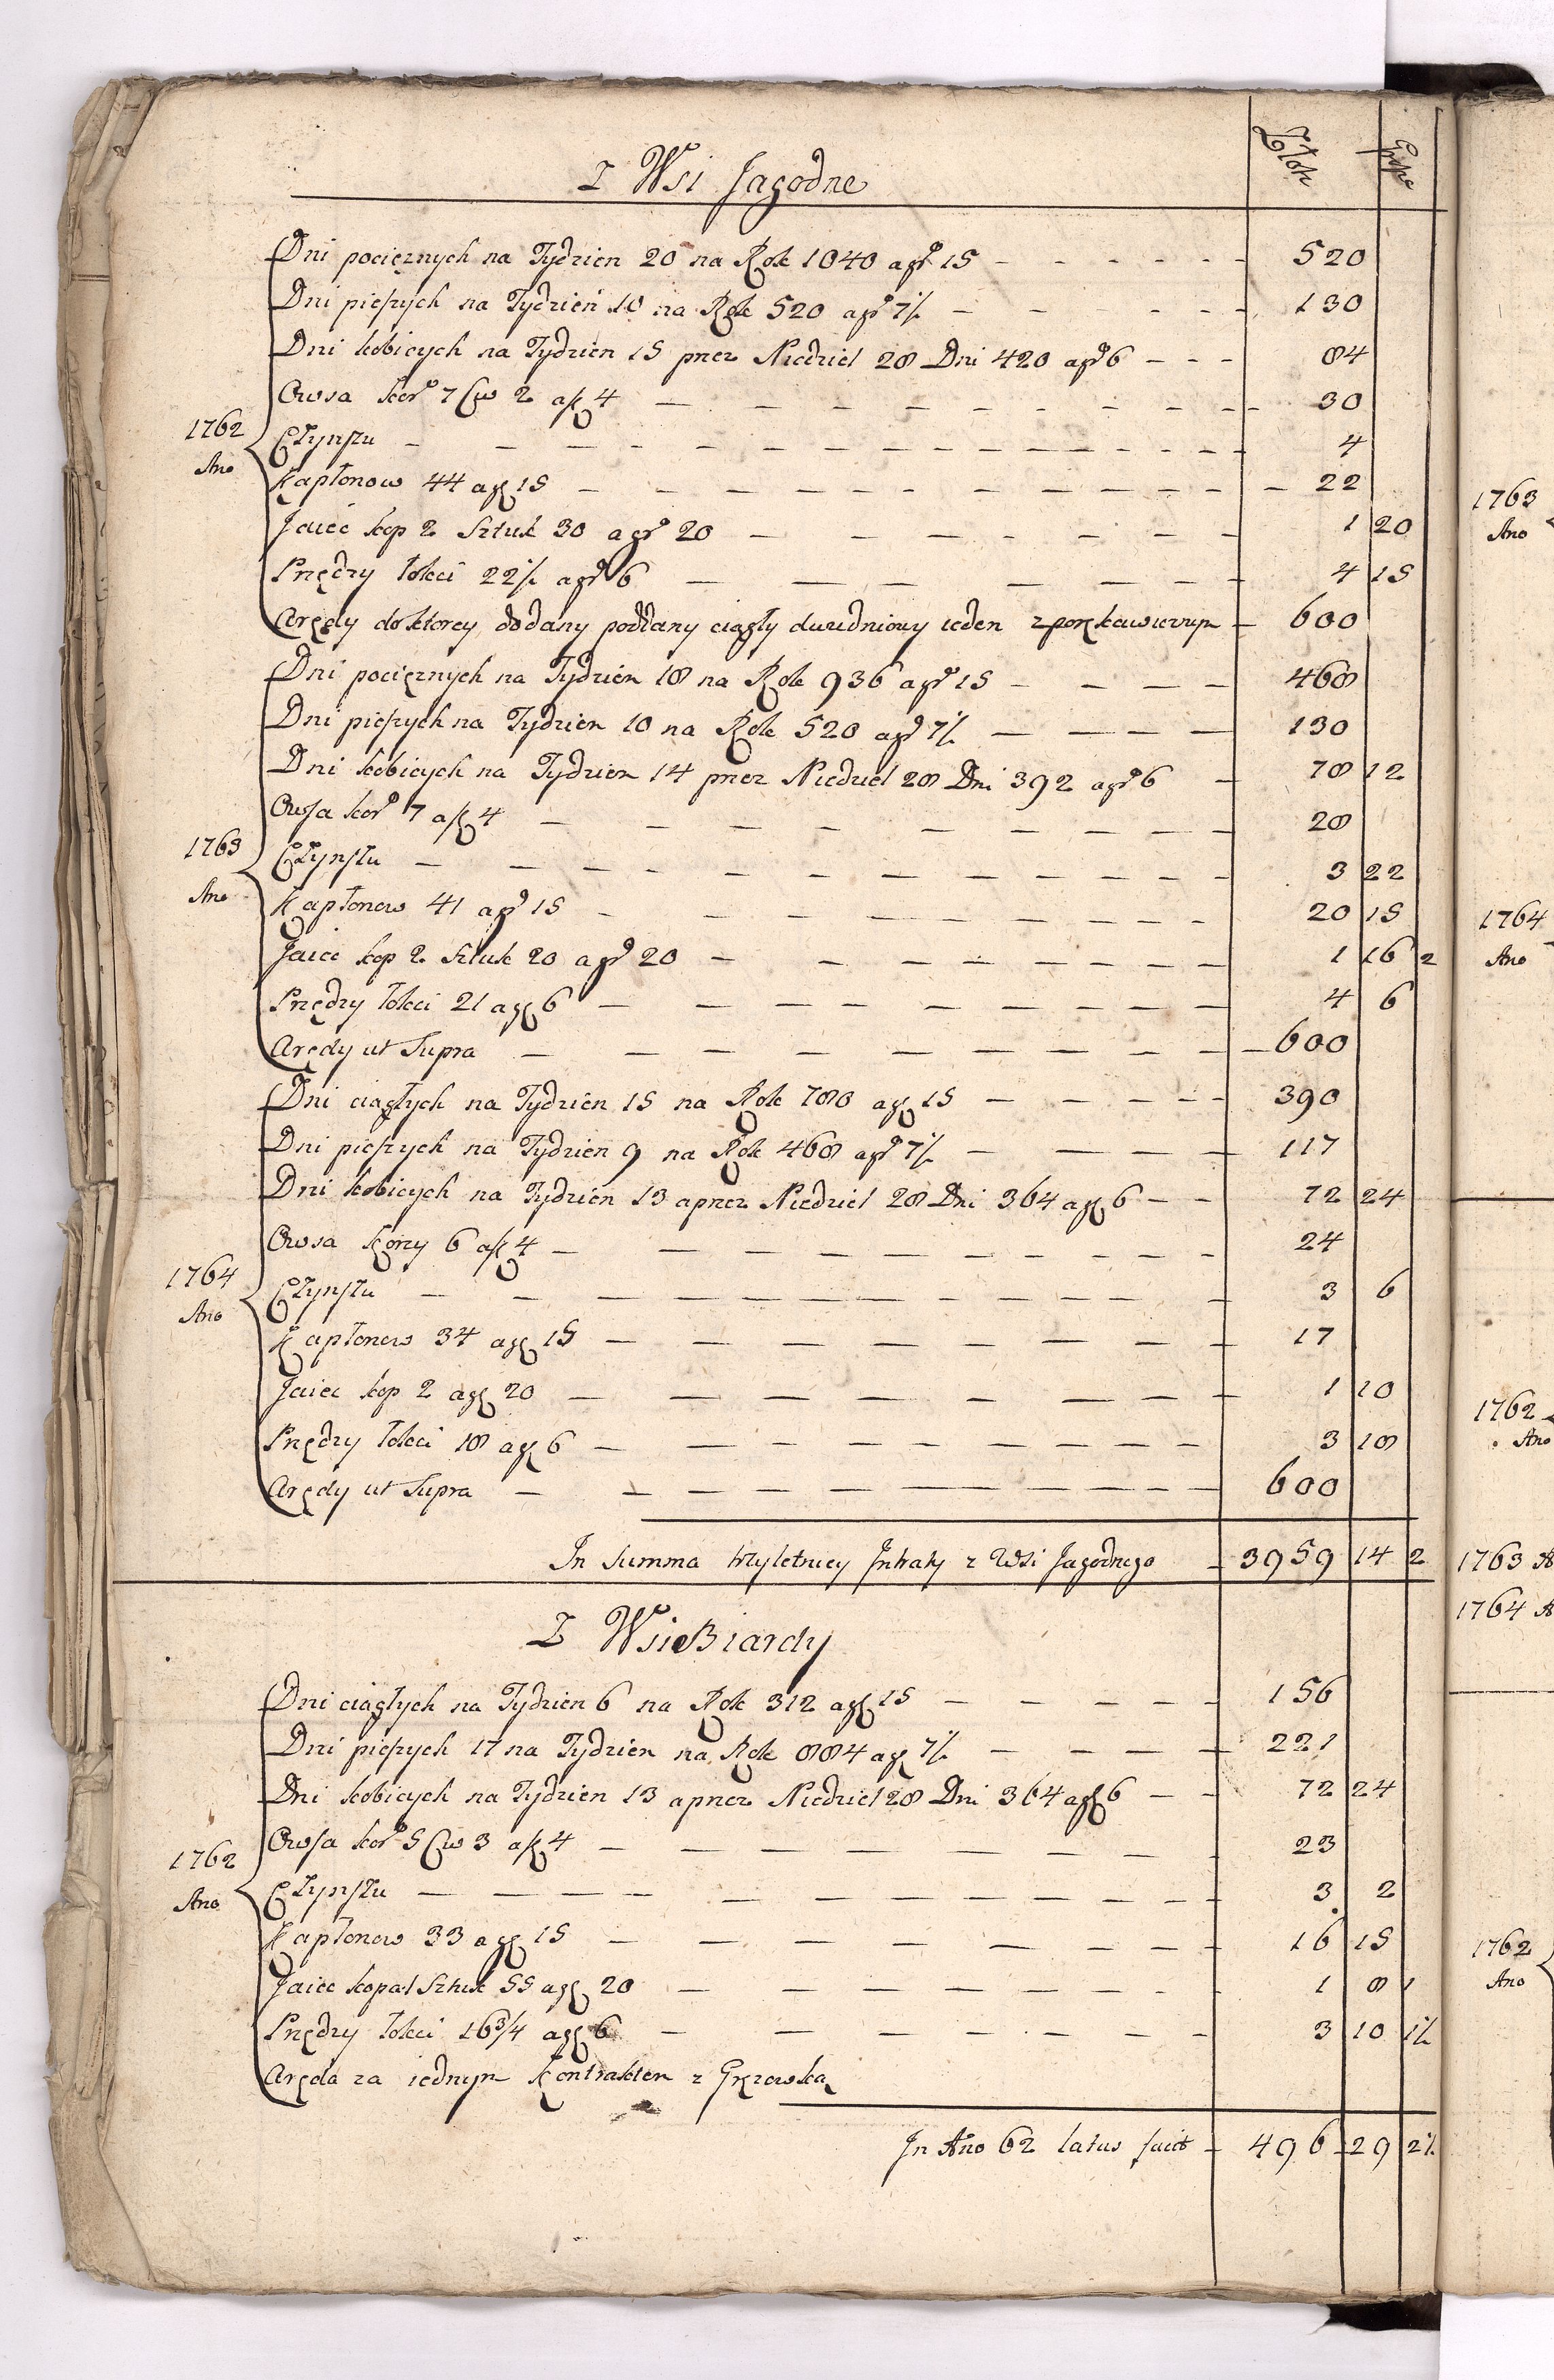 Złote Grosze
Z Wsi Jagodne
Dni pocięznych na Tydzien 20 na Rok 1040 a gr 15 520
Dni pieszych na Tydzień 10 na Rok 520 a gr 7½ 130
Dni kobicych na Tydzien 15 przez Niedziel 28 Dni 420 a gr 6 84
Owsa kor 7 Cw 2 a f 4 30
1762 Czynszu 4
Ano
Kapłonow 44 a gr 15 22
Jaiec kop 2 Sztuk 30 a gr 20 1 20
Przędzy łokci 22½ a gr 6 4 15
Arędy do ktorey dodany poddany ciągły dwudniowy ieden 600
Dni pocięznych na Tydzien 18 na Rok 936 a gr 15 468
Dni pieszych na Tydzien 10 na Rok 520 a gr 7½ 130
Dni kobicych na Tydzien 14 przez Niedziel 28 Dni 392 a gr 6 78 12
Owsa kor 7 a f 4 28
1763 Czynszu 3 22
Ano
Kapłonow 41 a gr 15 20 15
Jaiec kop 2 Sztuk 20 a gr 20 1 16 2
Przędzy łokci 21 a gr 6 4 6
Arędy ut Supra 600
Dni ciągłych na Tydzien 15 na Rok 780 a gr 15 390
Dni pieszych na Tydzien 9 na Rok 468 a gr 7½ 117
Dni kobicych na Tydzien 13 a przez Niedziel 28 Dni 364 a gr 6 72 24
Owsa Korzy 6 a f 4 24
1764 Czynszu 3 6
Ano
Kapłonow 34 a gr 15 17
Jaiec kop 2 a gr 20 1 10
Przędzy łokci 18 a gr 6 3 18
Arędy ut Supra 600
In Summa trzyletniey Intraty z Wsi Jagodnego 3959 14 2
Z Wsi Biardy
Dni ciągłych na Tydzien 6 na Rok 312 a gr 15 156
Dni pieszych 17 na Tydzien na Rok 884 a gr 7½ 221
Dni kobicych na Tydzien 13 a przez Niedziel 28 Dni 364 a gr 6 72 24
Owsa kor 5 Cw 3 a f 4 23
1762 Czynszu 3 2
Ano
Kapłonow 33 a gr 15 16 15
Jaiec kopa 1 Sztuk 55 a gr 20 1 8 1
Przędzy łokci 16 3/4 a gr 6 3 10 1½
Aręda za iednym Kontraktem z Gręzowską
In Ano 62 latus facit 496 29 2½
1763
Ano
1764
Ano
1762
Ano
1763 A
1764 A
1762
Ano